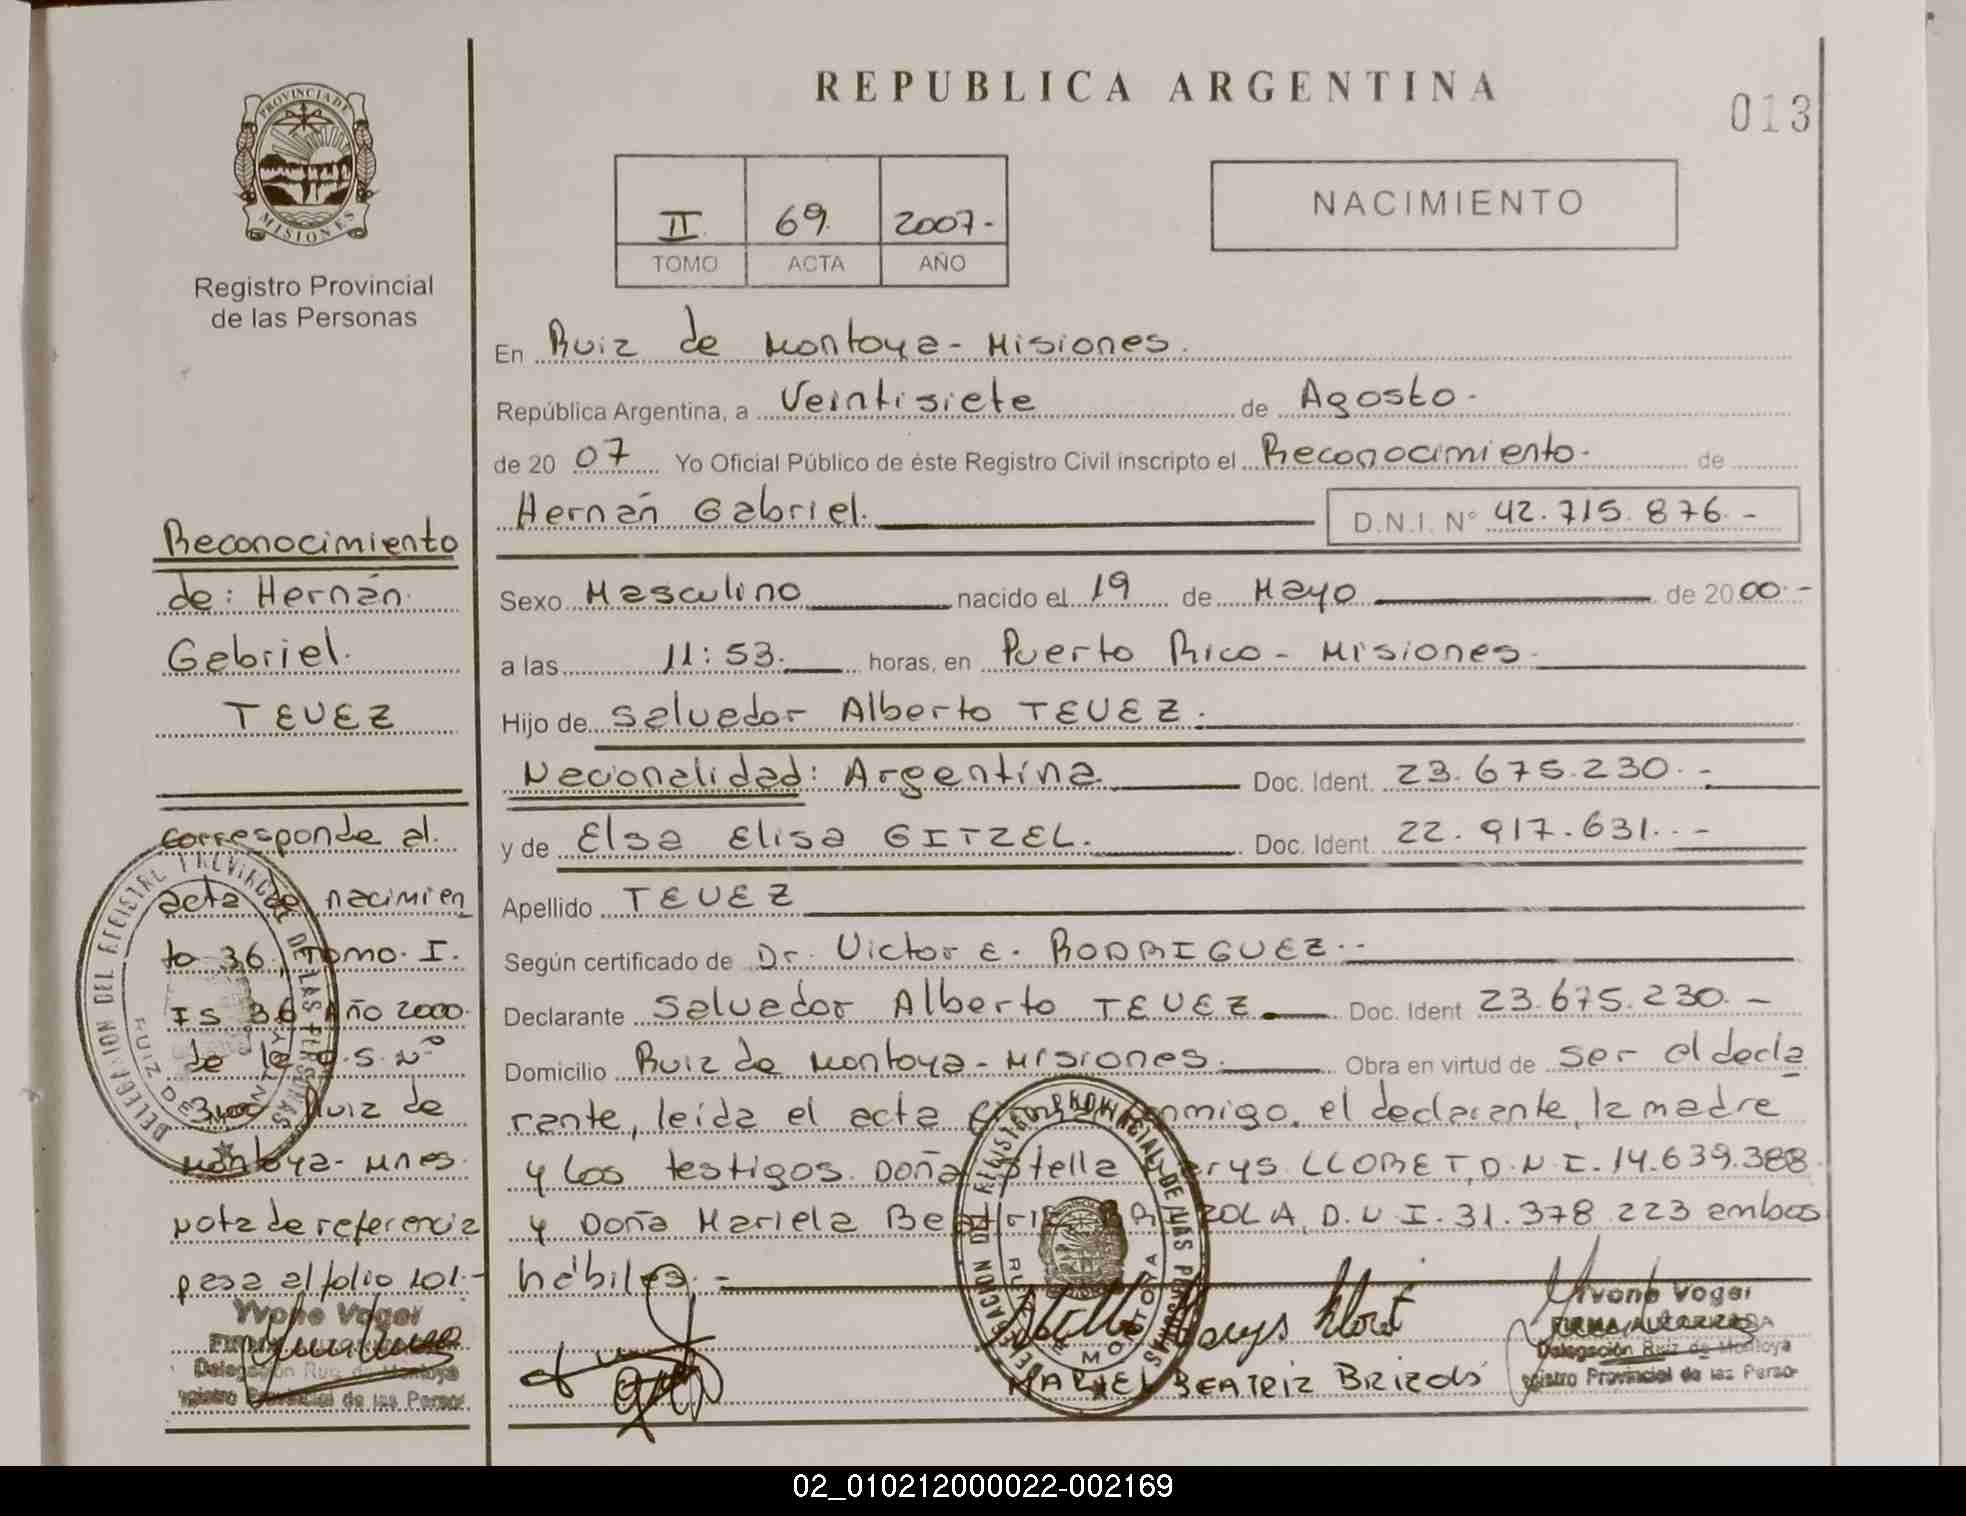 PROVINCIA DE
MISIONES
Registro Provincial
de las Personas
REPUBLICA ARGENTINA
013
II 69. 2007.-
TOMO ACTA AÑO
NACIMIENTO
En Ruiz de Montoya - Misiones.
República Argentina, a Veintisiete de Agosto.
de 20 07 Yo Oficial Público de éste Registro Civil inscripto el Reconocimiento. de
Hernán Gabriel. D.N.I. N° 42.715.876.-
Sexo Masculino nacido el 19 de Mayo de 20 00.-
a las 11:53. horas, en Puerto Rico - Misiones.
Hijo de Salvador Alberto TEVEZ.
Nacionalidad: Argentina. Doc. Ident. 23.675.230.-
y de Elsa Elisa GITZEL. Doc. Ident. 22.917.631.-
Apellido TEVEZ
Según certificado de Dr. Victor E. RODRIGUEZ.-
Declarante Salvador Alberto TEVEZ Doc. Ident 23.675.230.-
Domicilio Ruiz de Montoya - Misiones. Obra en virtud de ser el decla
rante, leída el acta conmigo, el declarante, la madre
y los testigos. Doña Stella LLORET, D.N.I. 14.639.388.
y Doña Mariela Beatriz D.N.I. 31.378.223 ambos
hábiles.-
Reconocimiento
de: Hernán
Gabriel.
TEVEZ
corresponde al.
acta de nacimien
to 36, Tomo. I.
Año 2000.
de la O.S. Nº
3100 Ruiz de
Montoya - Mnes.
nota de referencia
pasa al folio 101.-
Yvone Voger
Delegación Ruiz de Montoya
Registro Provincial de las Person
DELEGACION DEL REGISTRO PROVINCIAL DE LAS PERSONAS
RUIZ DE MONTOYA
DELEGACION DEL REGISTRO PROVINCIAL DE LAS PERSONAS
RUIZ DE MONTOYA
BEATRIZ
Yvone Voger
FIRMA AUTORIZADA
Delegación Ruiz de Montoya
Registro Provincial de las Perso
02_010212000022-002169